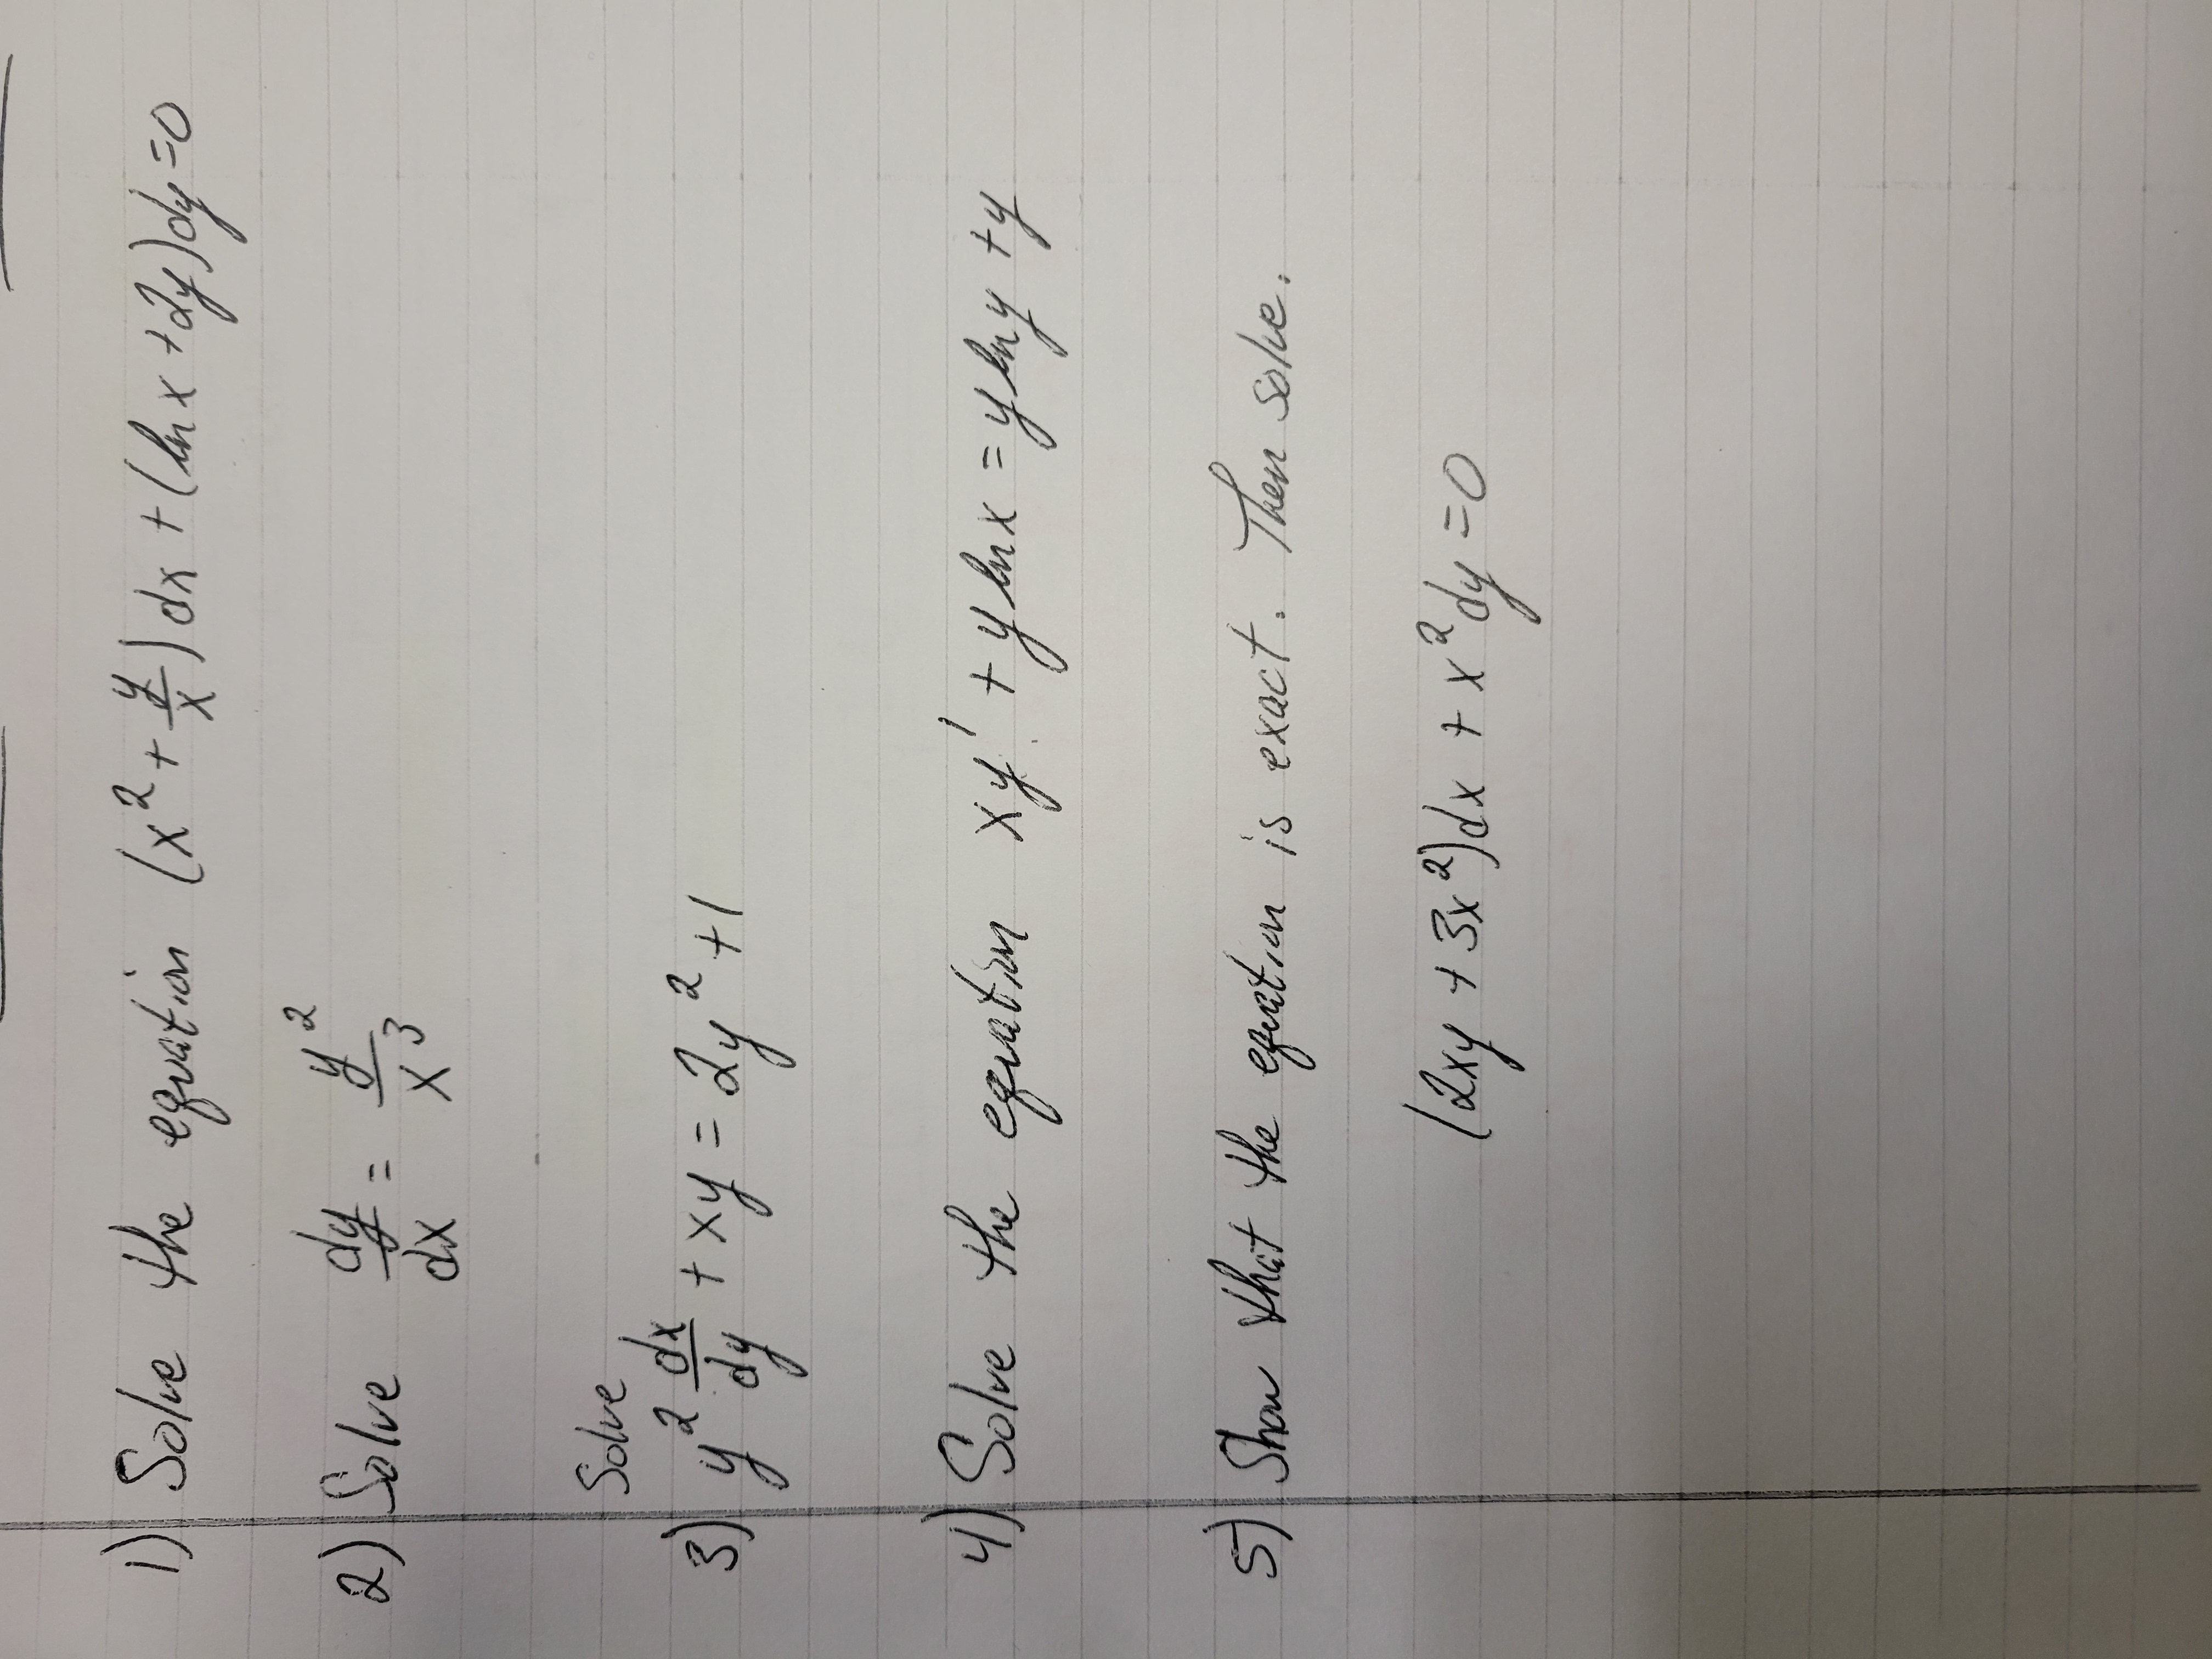 1) Solve the equation (x² + y/x) dx + (ln x + 2y) dy = 0
2) Solve dy/dx = y²/x³
Solve
3) y² dx/dy + xy = 2y² + 1
4) Solve the equation xy' + y ln x = y ln y + y
5) Show that the equation is exact. Then solve.
(2xy + 3x²)dx + x² dy = 0